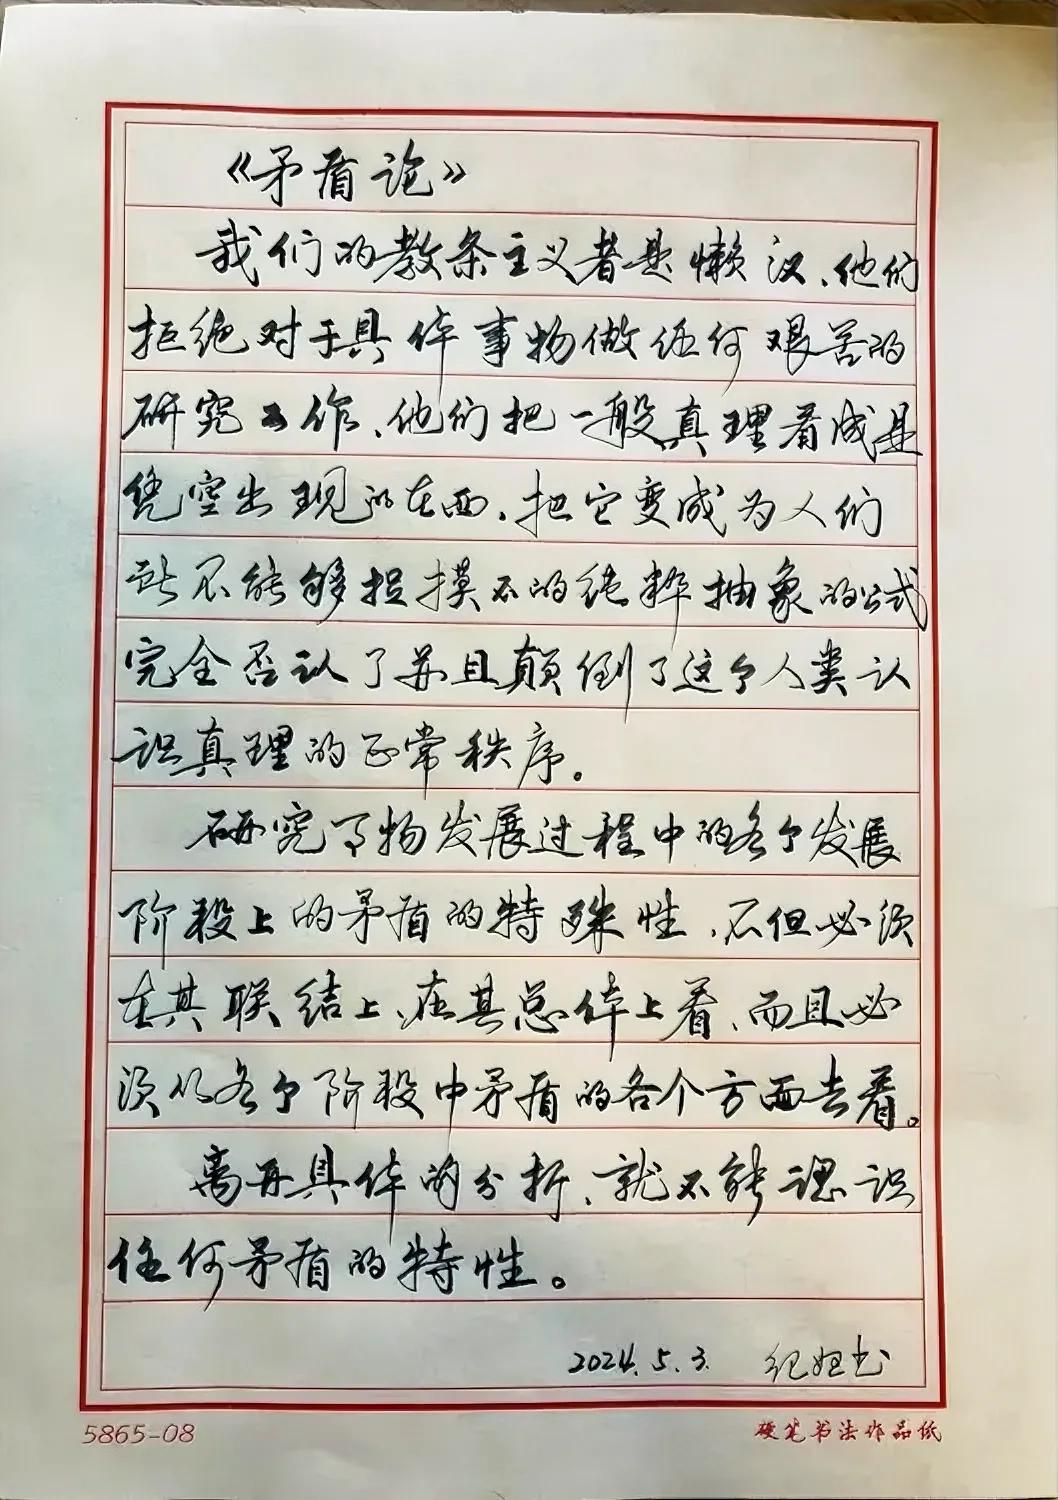 《矛盾论》
我们的教条主义者是懒汉、他们
拒绝对于具体事物做任何艰苦的
研究工作、他们把一般真理看成是
凭空出现的东西、把它变成为人们
所不能够捉摸不的纯粹抽象的公式
完全否认了并且颠倒了这个人类认
识真理的正常秩序。
研究事物发展过程中的各个发展
阶段上的矛盾的特殊性、不但必须
在其联结上、在其总体上看、而且必
须从各个阶段中矛盾的各个方面去看。
离开具体的分析、就不能认识
任何矛盾的特性。
2024.5.3. 纪 书
5865-08
硬笔书法作品纸